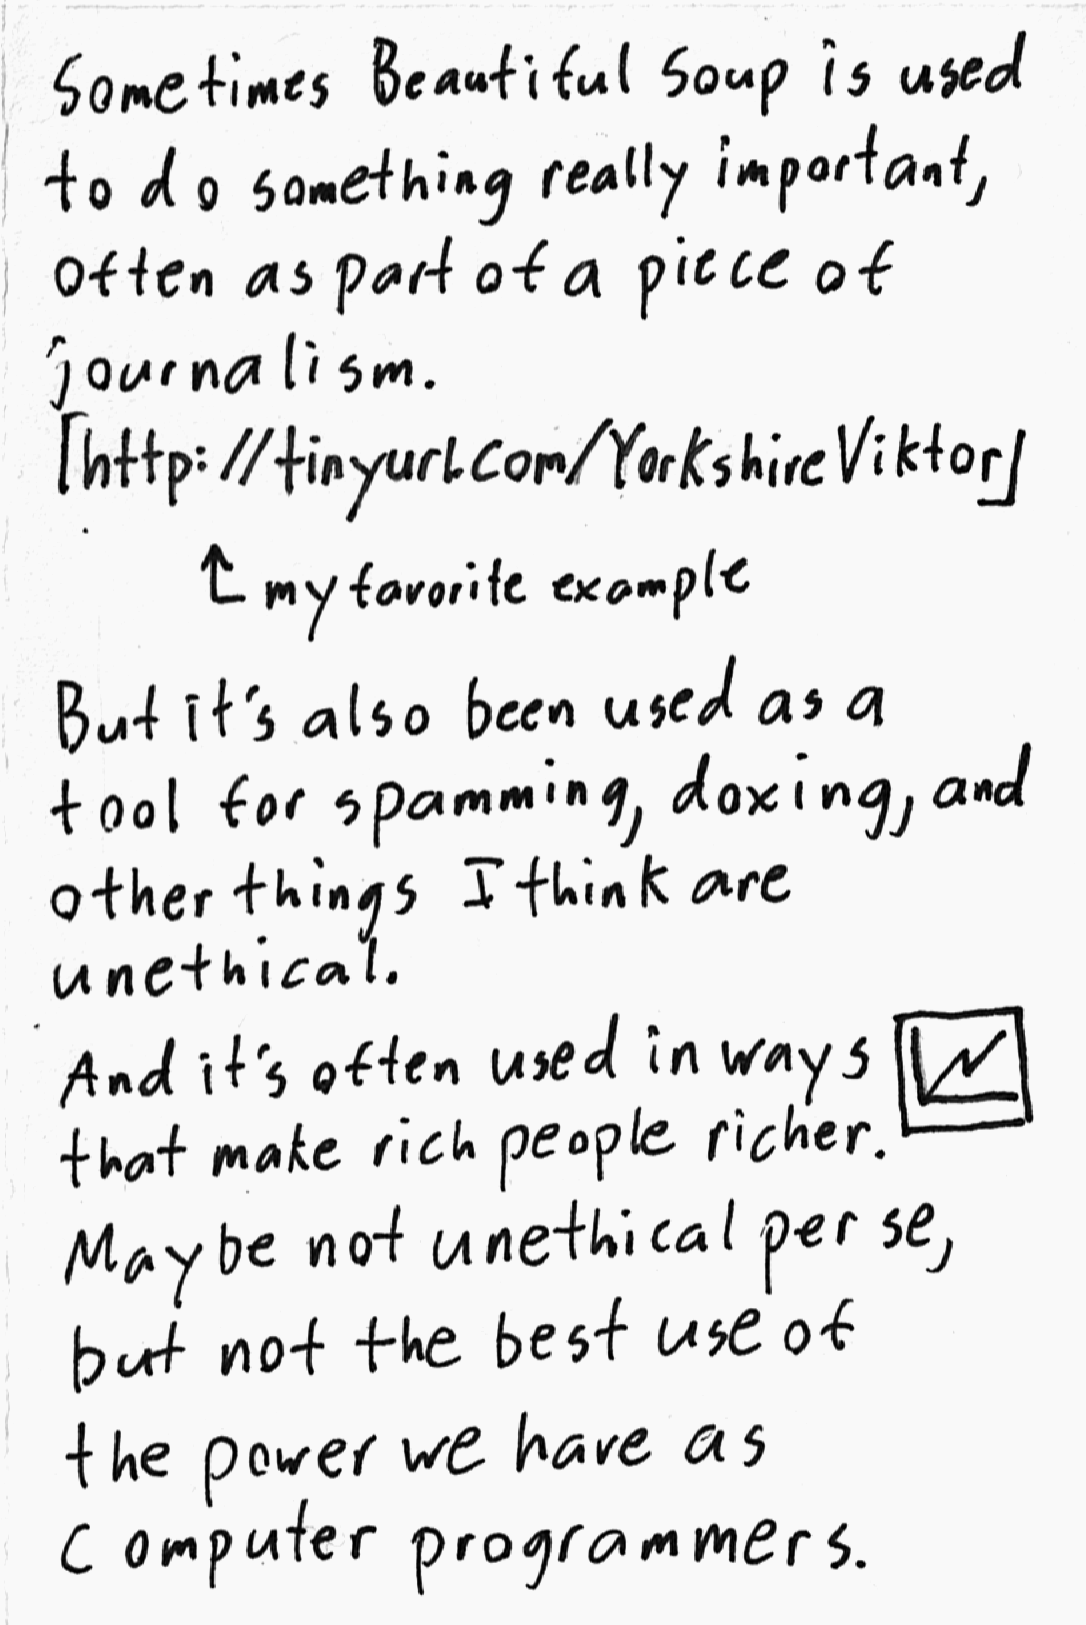 Sometimes Beautiful Soup is used
to do something really important,
often as part of a piece of
journalism.
[http://tinyurl.com/YorkshireViktor]
↑ my favorite example
But it's also been used as a
tool for spamming, doxing, and
other things I think are
unethical.
And it's often used in ways
that make rich people richer.
Maybe not unethical per se,
but not the best use of
the power we have as
computer programmers.